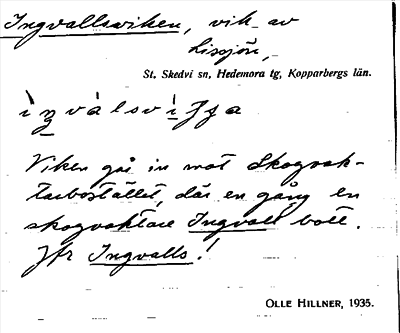 Ingvallsviken, vik av
Lissjön,
St. Skedvi sn, Hedemora tg, Kopparbergs län.
Viken går in mot Skogvak-
tarbostället, där en gång en
skogvaktare Ingvall bott.
Jfr Ingvalls!
OLLE HILLNER, 1935.